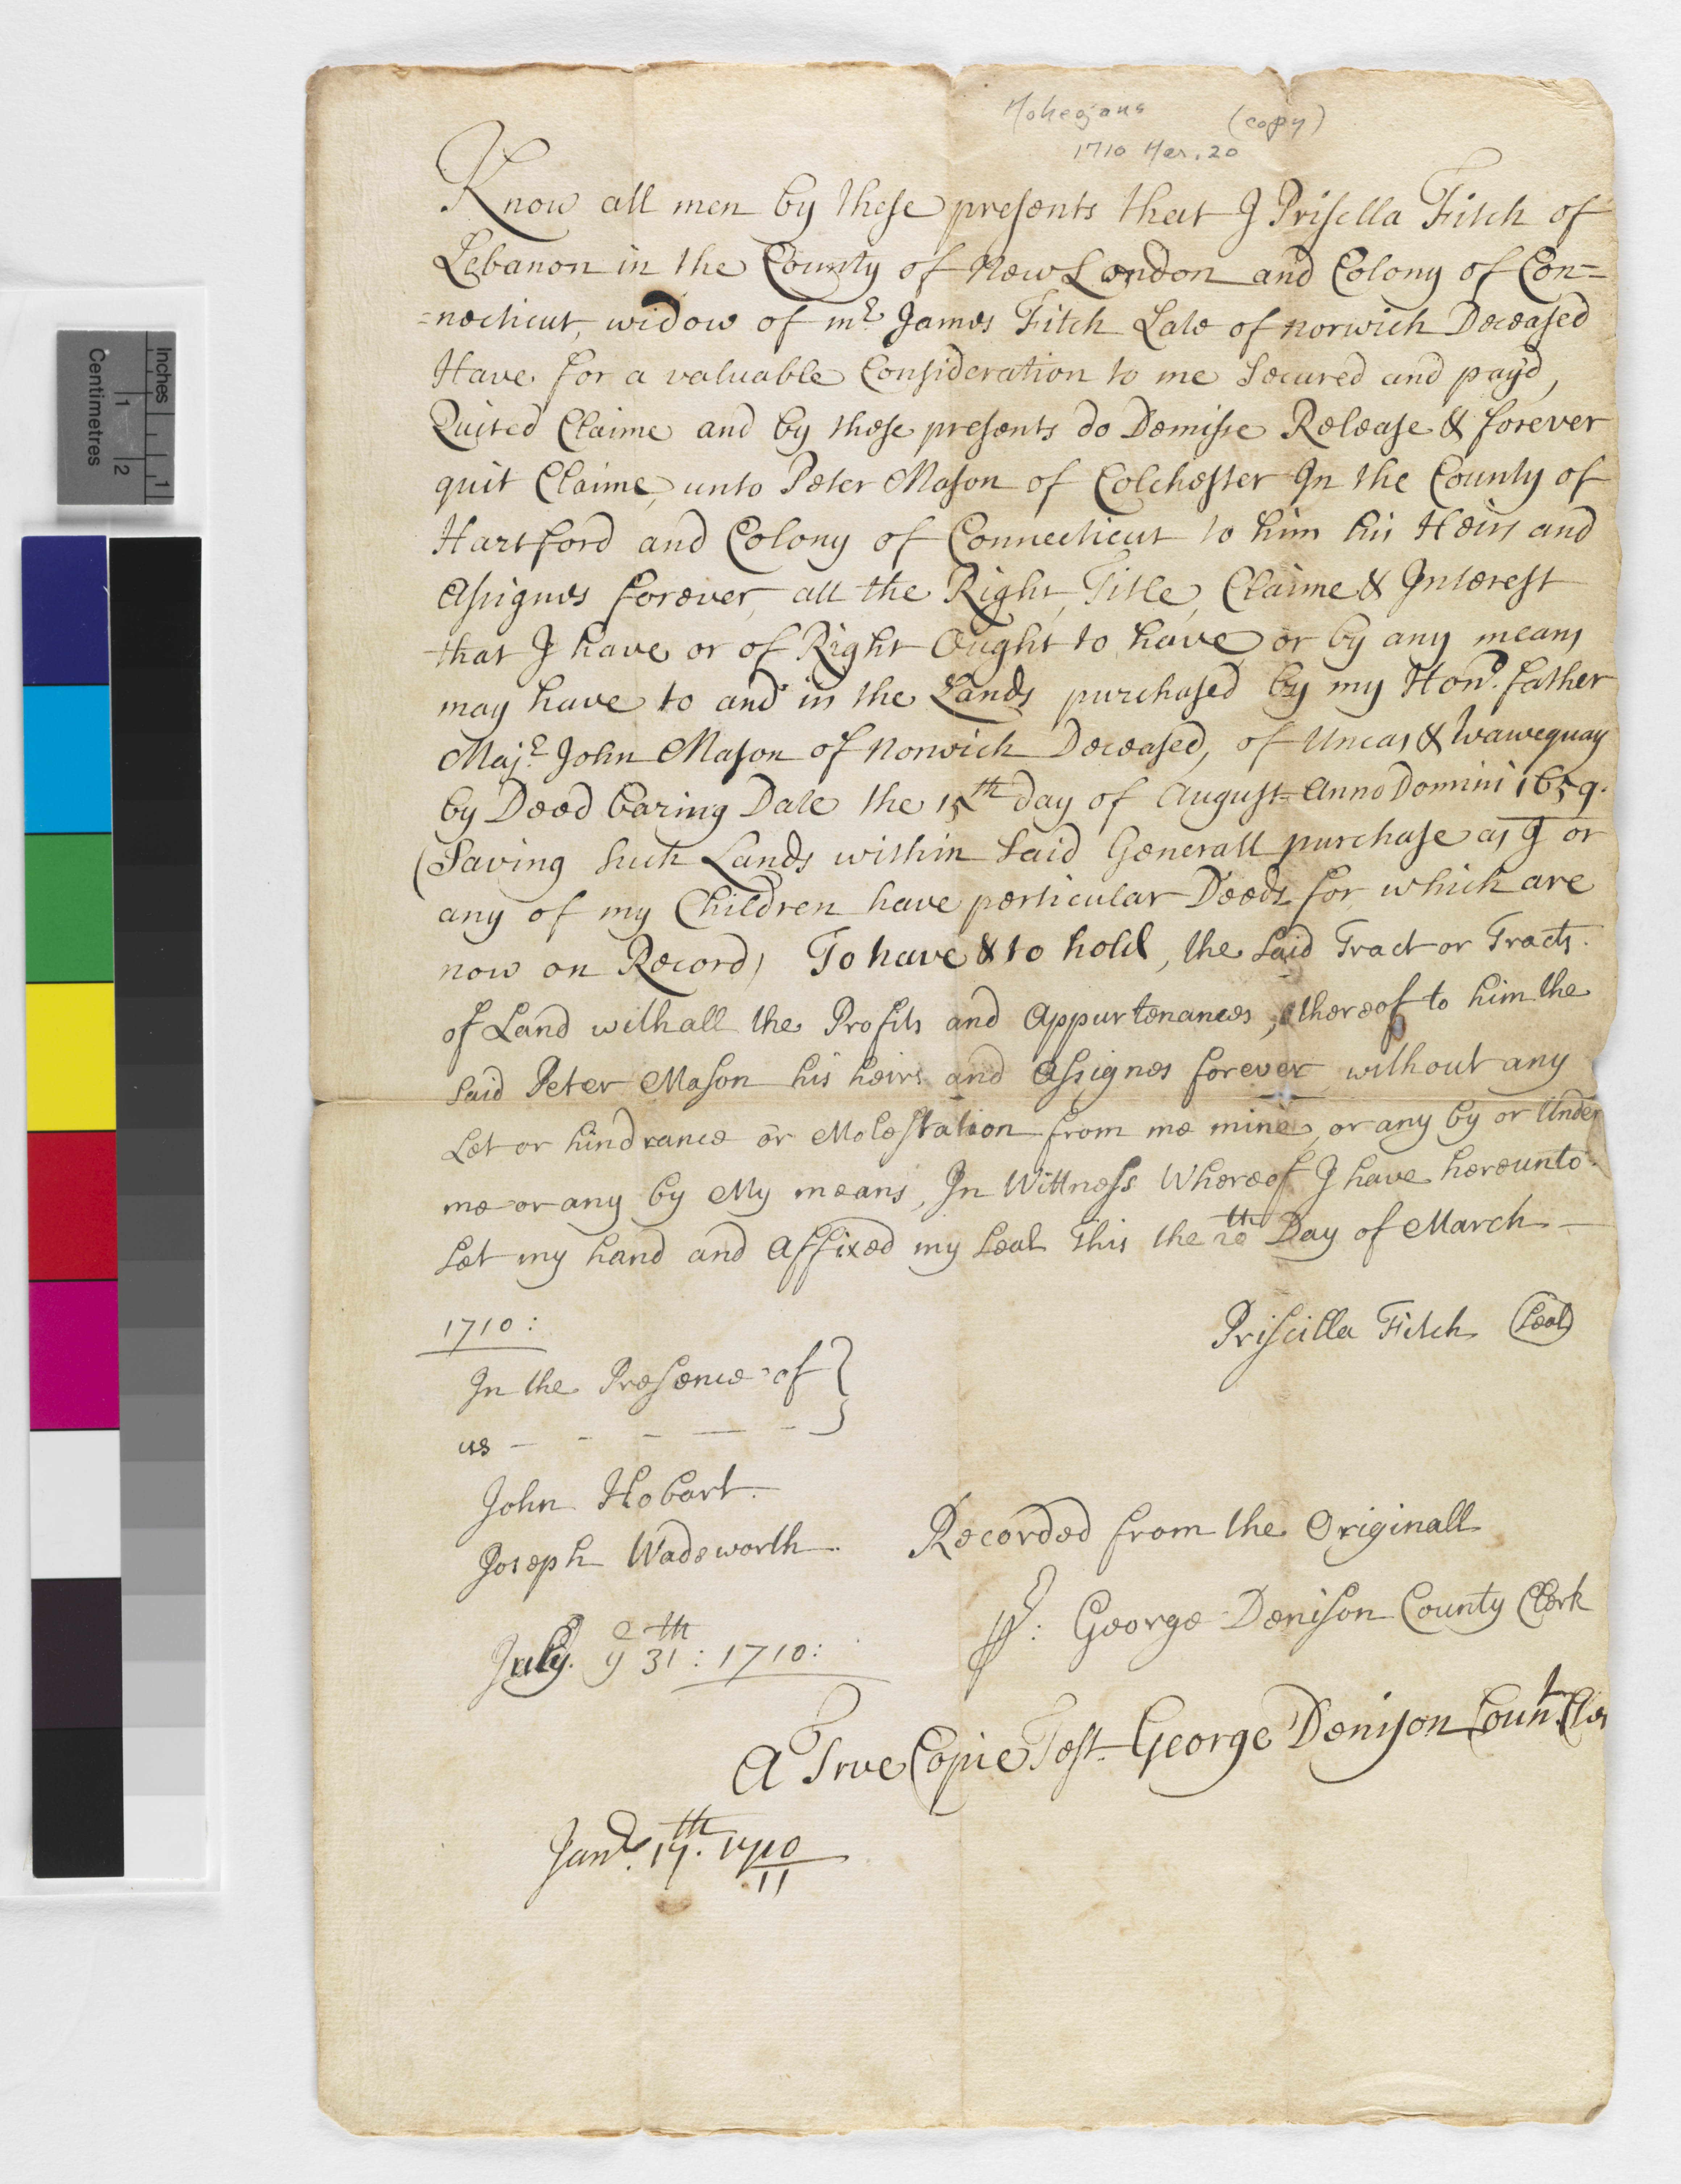 Mohegans (copy)
1710 Mar. 20
Know all men by these presents that I Prisella Fitch of
Lebanon in the County of New London and Colony of Con=
=necticut, widow of mr James Fitch Late of norwich Deceased
Have for a valuable Consideration to me Secured and pay'd,
Quited Claime and by these presents do Demisse Release & forever
quit Claime, unto Peter Mason of Colchester In the County of
Hartford and Colony of Connecticut to him his Heirs and
Assignes forever, all the Right, Title, Claime & Interest
that I have or of Right Ought to have or by any means
may have to and in the Lands purchased by my Hond. father
Majr. John Mason of Norwich Deceased, of Uncas & Wawequay
by Deed baring Date the 15th day of August Anno Domini 1659.
(Saving such Lands within said Generall purchase as I or
any of my Children have perticular Deeds for, which are
now on Record) To have & to hold, the said Tract or Tracts
of Land withall the Profits and Appurtenances, thereof to him the
said Peter Mason his heirs and Assignes forever without any
Let or hindrance or Molestation from me mine, or any by or Under
me or any by My means, In Wittness Whereof I have hereunto
Set my hand and Affixed my Seal This the 20th Day of March
1710:
Priscilla Fitch Seal
In the Presence of
us
John Hobart.
Joseph Wadsworth.
Recorded from the Originall
July. ye 31th: 1710:
George Denison County Clerk
A True Copie Test. George Denison Count. Cler
Janr. 17th. 1710/11
Inches
1
Centimetres
1
2